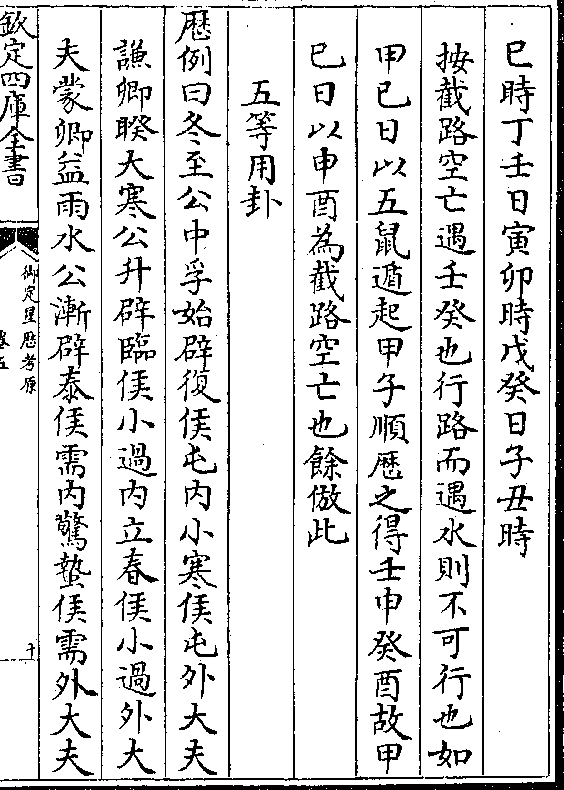 巳時丁壬日寅卯時戊癸日子丑時
按截路空亡遇壬癸也行路而遇水則不可行也如
甲巳日以五鼠遁起甲子順歴之得壬申癸酉故甲
巳日以申酉為截路空亡也餘倣此
五等用卦
歴例曰冬至公中孚始辟復侯屯内小寒侯屯外大夫
謙卿睽大寒公升辟臨侯小過内立春侯小過外大
夫蒙卿益雨水公漸辟泰侯需内驚蟄侯需外大夫
欽定四庫全書
御定星歴考原
卷五
十